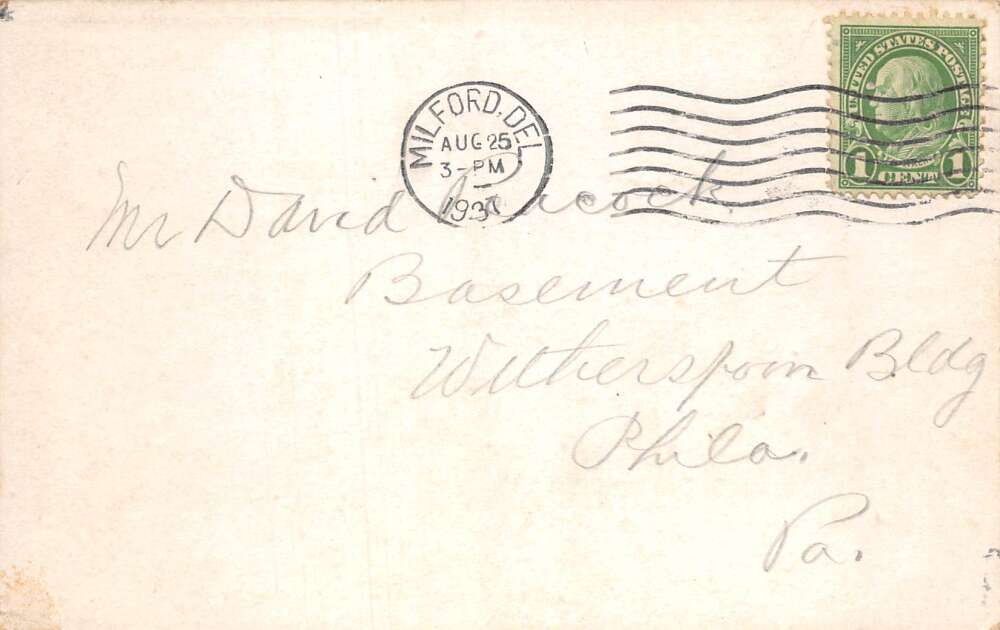 UNITED STATES POSTAGE
1 CENT 1
MILFORD, DEL.
AUG 25
3-PM
Mr David
Basement
Witherspoon Bldg
Phila.
Pa.